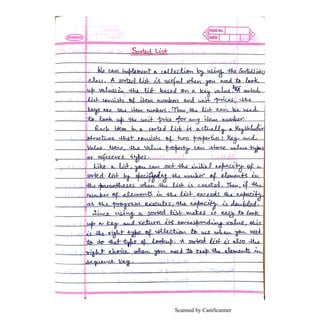 PAGE NO.
DATE
Sorted List
We can implement a collection by using the SortedList
class. A sorted list is useful when you need to look
up values in the list based on a key value. If a sorted
list consists of item numbers and unit prices, the
keys are the item numbers. Then, the list can be used
to look up the unit price for any item number.
Each item in a sorted list is actually a KeyValuePair
structure that consists of two properties: Key and
Value. Here, the value property can store value types
or reference types.
Like a list, you can set the initial capacity of a
sorted list by specifying the number of elements in
the parentheses when the list is created. Then, if the
number of elements in the list exceeds the capacity
as the program executes, the capacity is doubled.
Since using a sorted list makes it easy to look
up a key and return its corresponding value, this
is the right type of collection to use when you need
to do that type of lookup. A sorted list is also the
right choice when you need to keep the elements in
sequence key.
Scanned by CamScanner